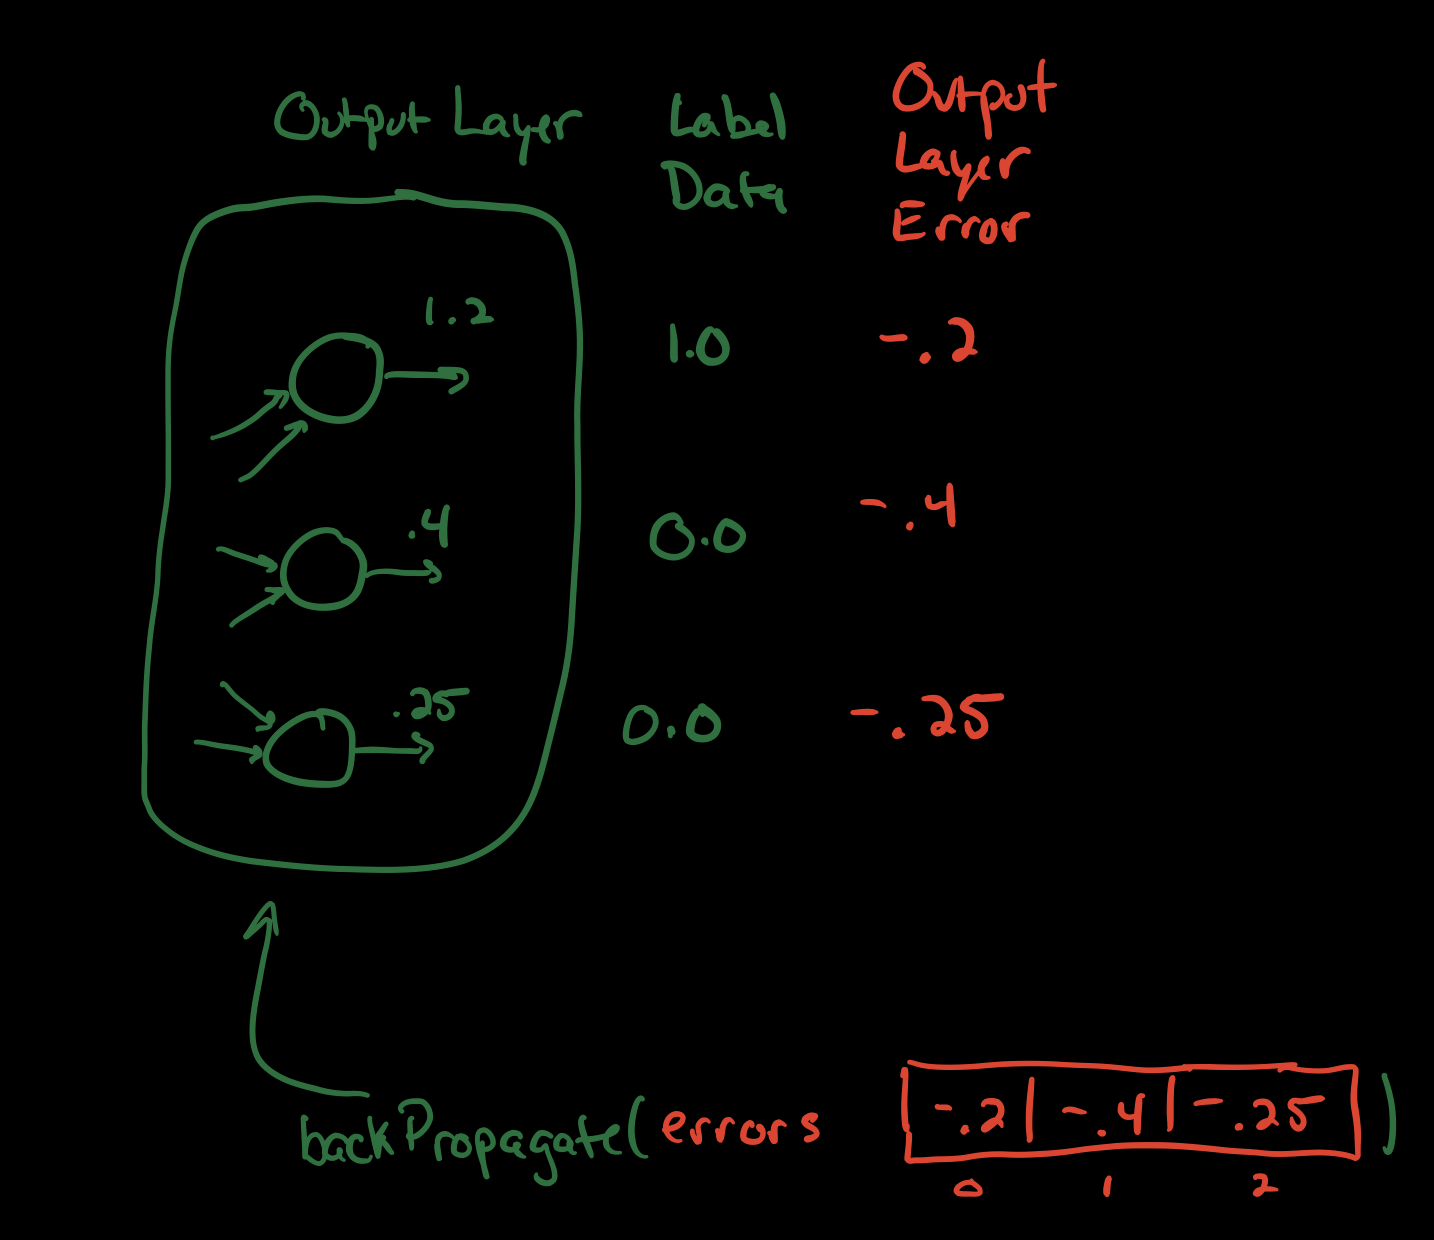 Output Layer
Label
Data
Output
Layer
Error
1.2
1.0
-.2
.4
0.0
-.4
.25
0.0
-.25
backPropagate( errors -.2 | -.4 | -.25 )
0 1 2